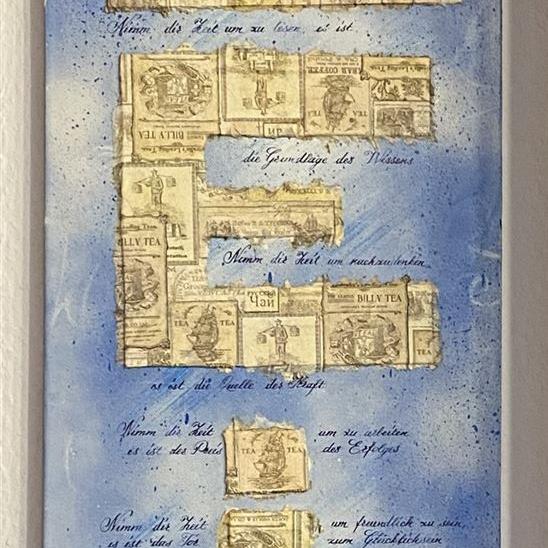 Nimm dir Zeit um zu lesen, es ist
BILLY TEA
die Grundlage des Wissens
BILLY TEA
Nimm dir Zeit um nachzudenken
Чай
BILLY TEA
TEA TEA
es ist die Quelle der Kraft
Nimm dir Zeit um zu arbeiten
es ist der Preis TEA TEA des Erfolges
Nimm dir Zeit um freundlich zu sein,
es ist das Tor zum Glücklichsein